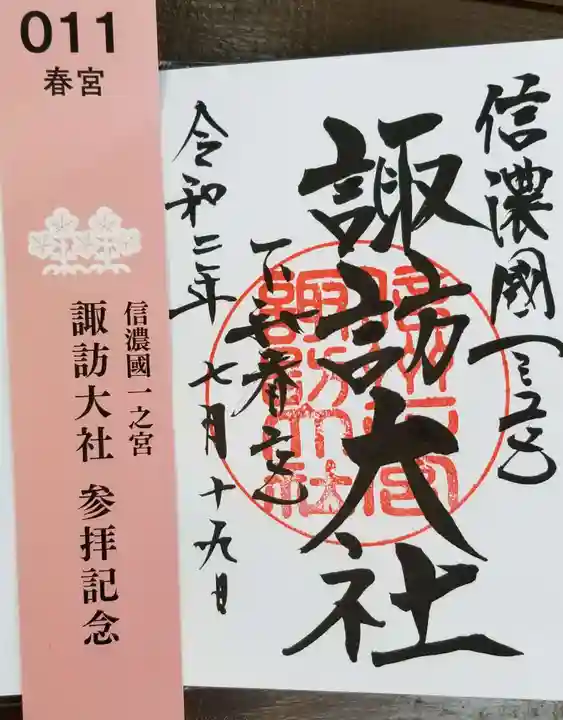 011
春宮
信濃國一之宮
諏訪大社 参拝記念
信濃國一之宮
諏訪大社
下社春宮
令和二年 七月十九日